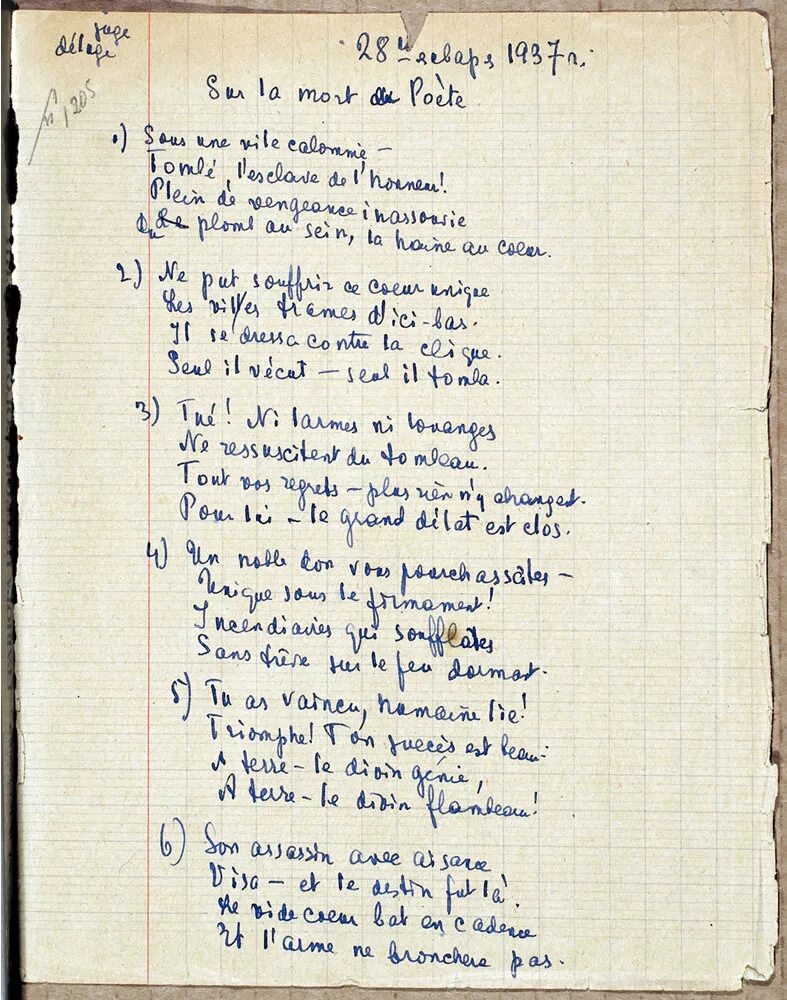 juge
délage
28го января 1937 г.
Sur la mort du Poète
1) Sous une vile calomnie —
Tombé, l'esclave de l'honneur!
Plein de vengeance inassouvie
Du plomb au sein, la haine au coeur.
2) Ne put souffrir ce coeur unique
Les viles trames d'ici-bas.
Il se dressa contre la clique.
Seul il vécut — seul il tomba.
3) Tué! Ni larmes ni louanges
Ne ressuscitent du tombeau.
Tout vos regrets — plus rien n'y changent.
Pour lui — le grand débat est clos.
4) Un noble don vous pourchassâtes —
Unique sous le firmament!
Incendiaires qui soufflâtes
Sans trêve sur le feu dormant.
5) Tu as vaincu, humaine lie!
Triomphe! Ton succès est beau.
A terre — le divin génie,
A terre — le divin flambeau!
6) Son assassin avec aisance
Visa — et le destin fut là.
Le vide coeur bat en cadence
Et l'arme ne bronchera pas.